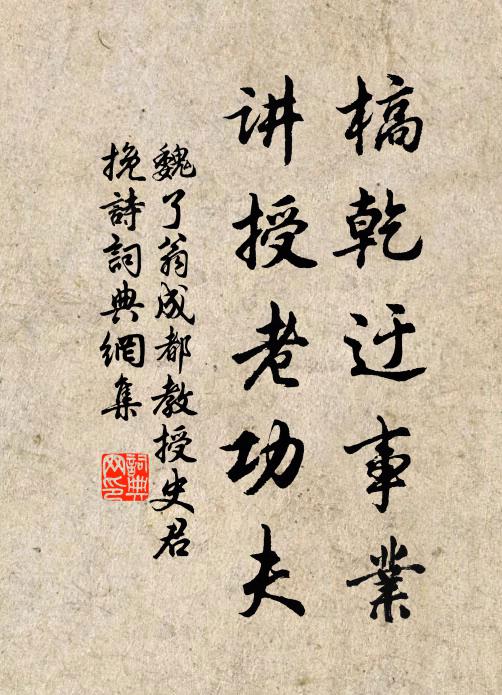 槁乾迂事業
讲授老功夫
魏了翁成都教授史君
挽詩詞典網集
詞典
网印